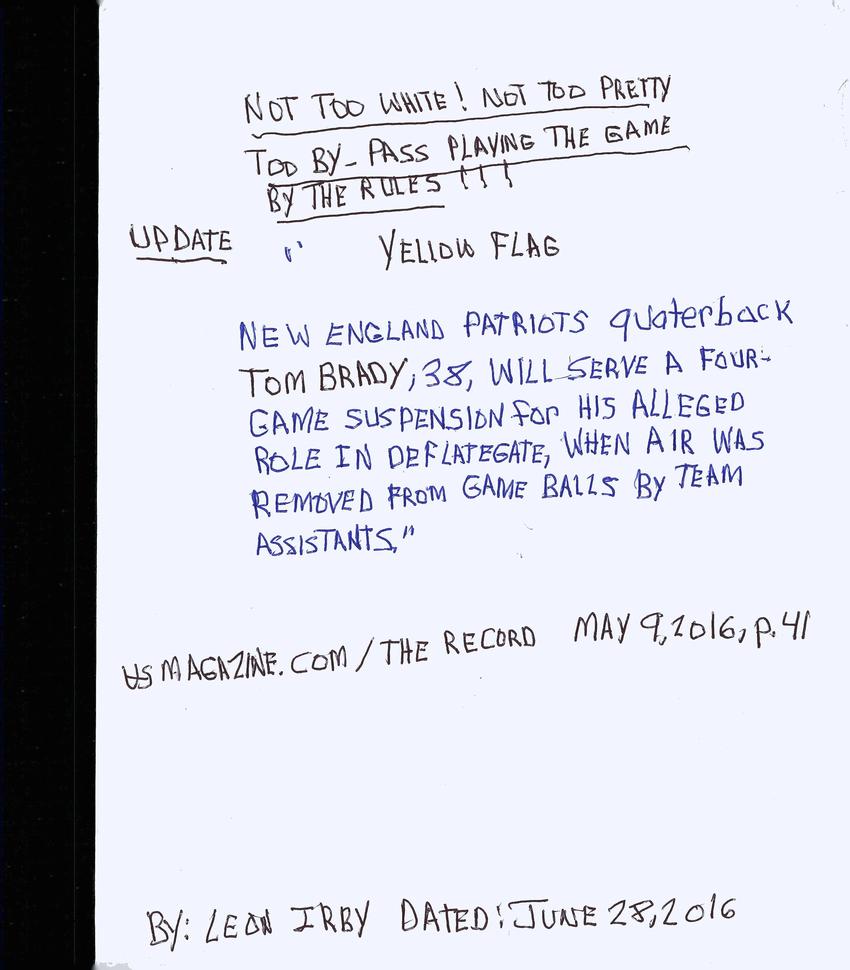 NOT TOO WHITE! NOT TOO PRETTY
TOO BY-PASS PLAYING THE GAME
BY THE RULES !!!
UPDATE " YELLOW FLAG
NEW ENGLAND PATRIOTS quaterback
TOM BRADY, 38, WILL SERVE A FOUR-
GAME SUSPENSION for HIS ALLEGED
ROLE IN DEFLATEGATE, WHEN AIR WAS
REMOVED FROM GAME BALLS BY TEAM
ASSISTANTS,"
US MAGAZINE.COM/THE RECORD MAY 9,2016, p.41
BY: LEON IRBY DATED: JUNE 28,2016